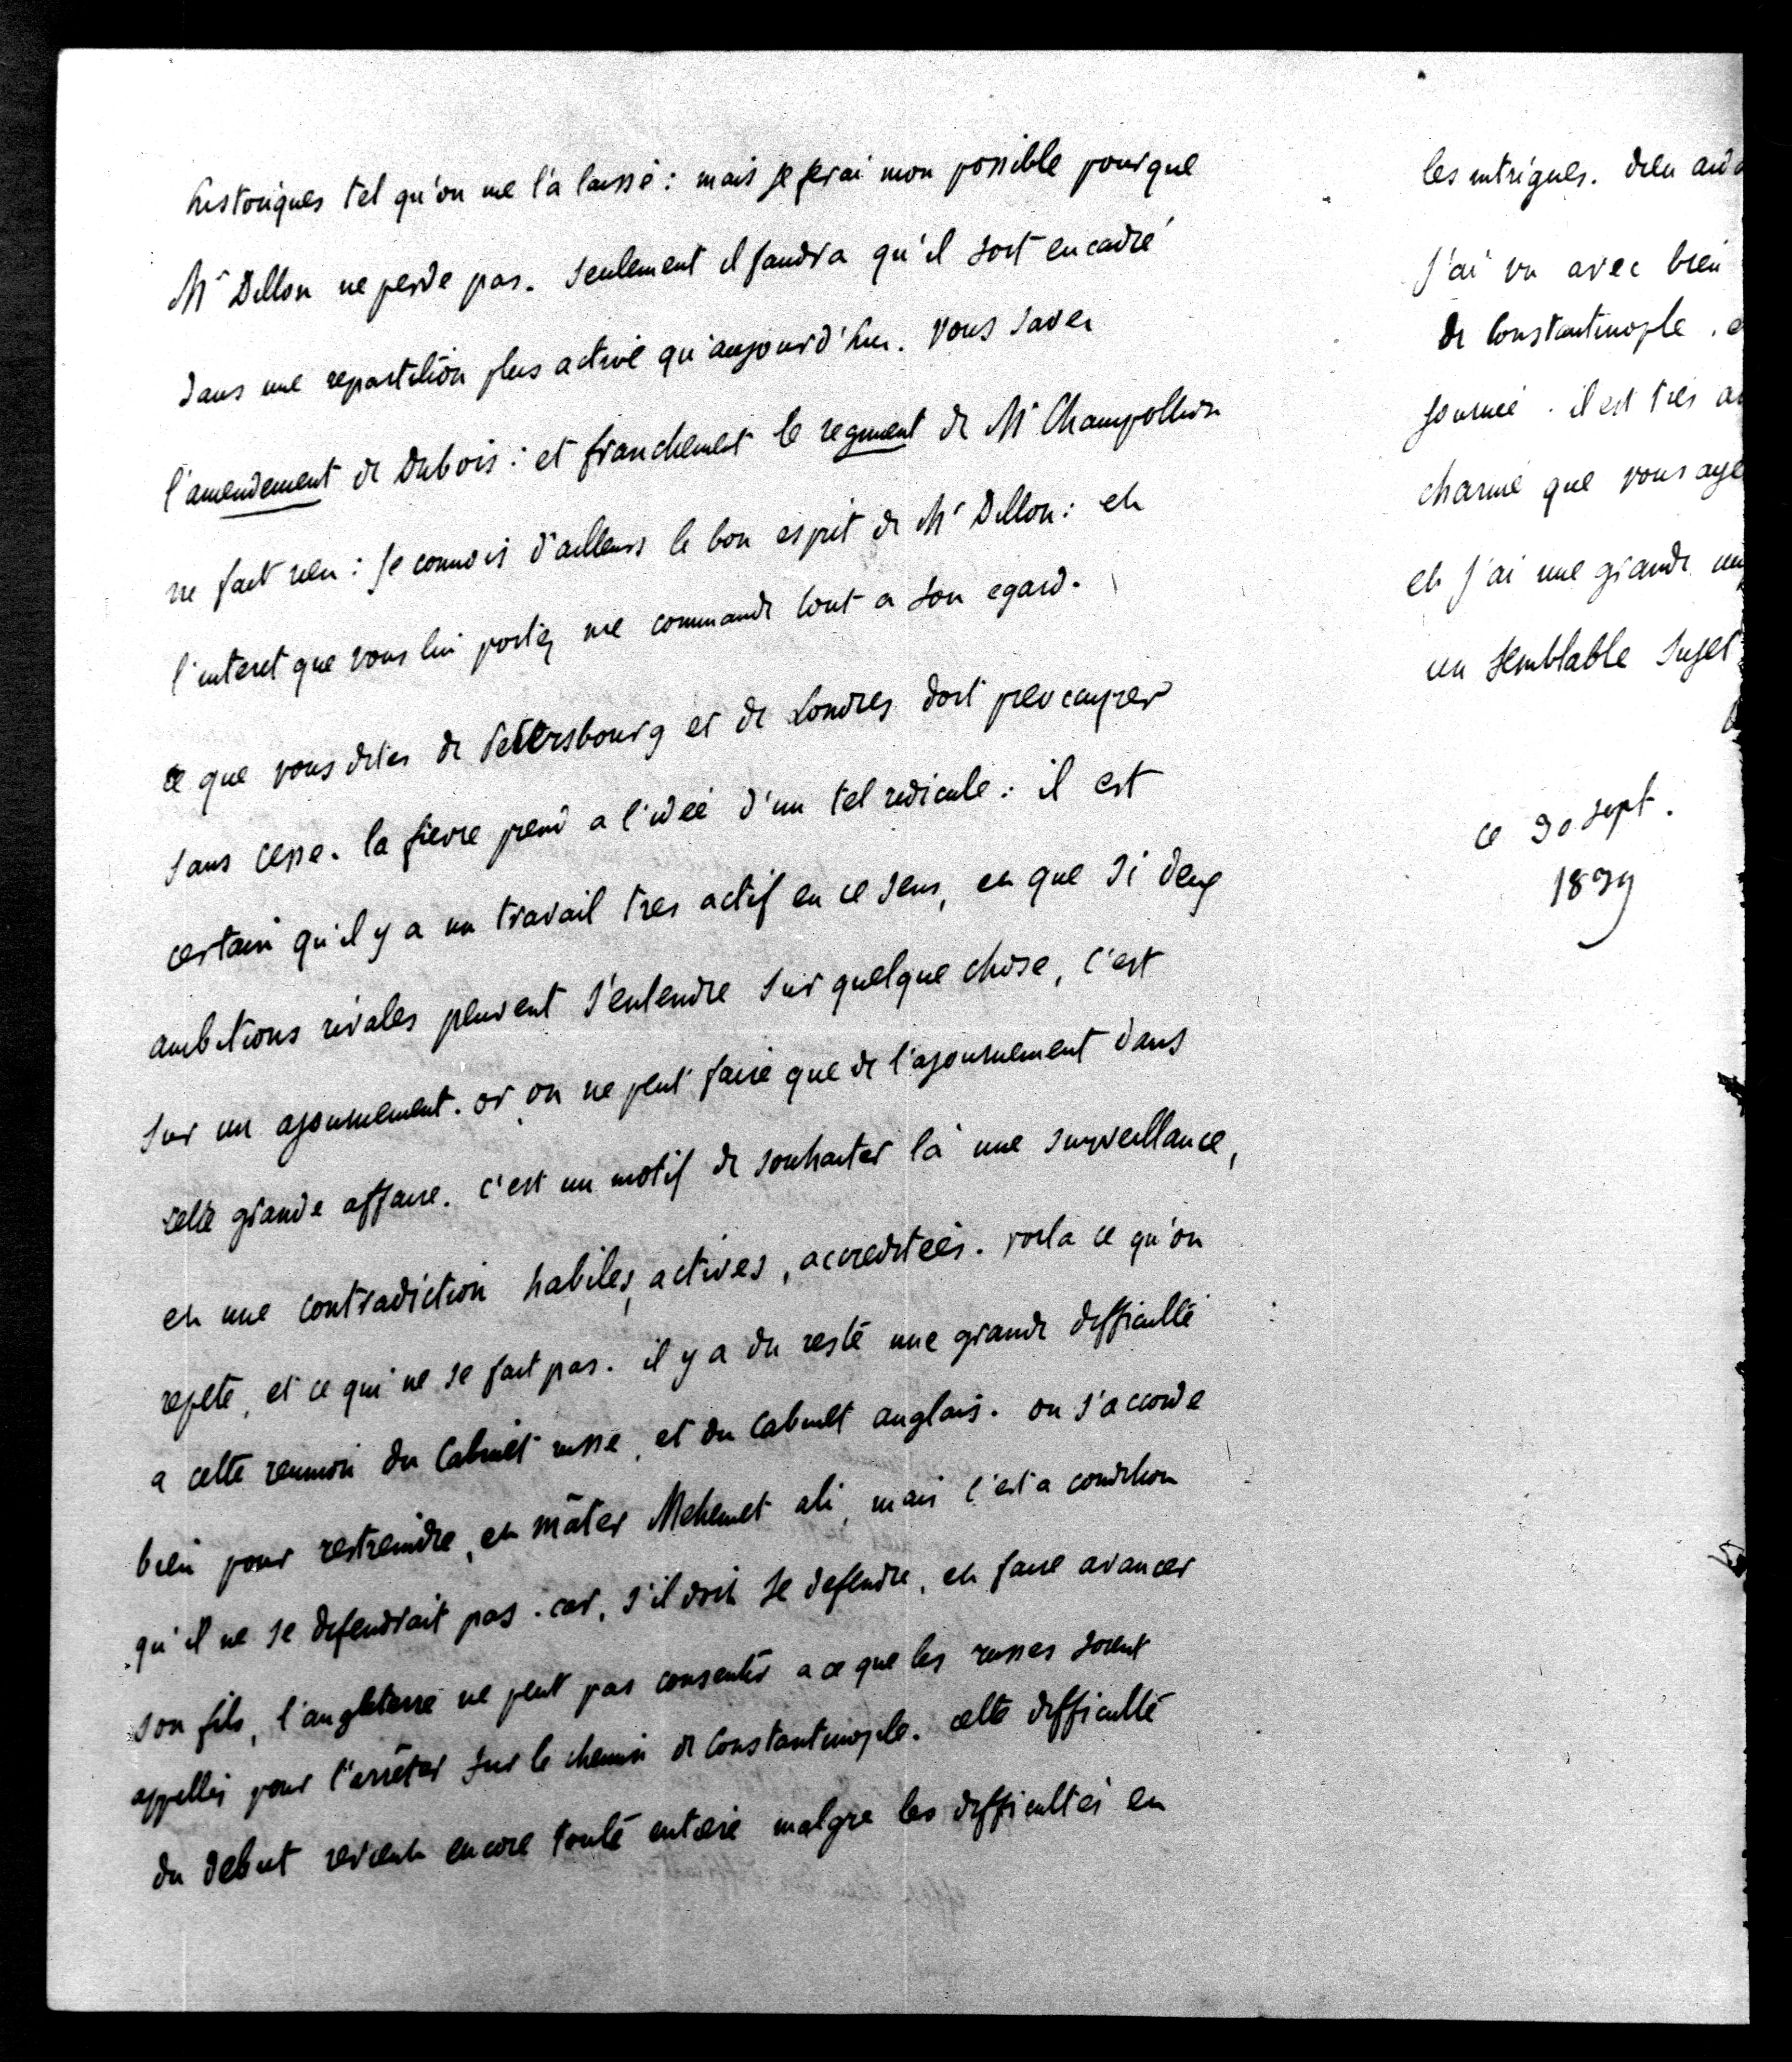 historiques tel qu'on me l'a laissé : mais je ferai mon possible pourque
Mr Dillon ne perde pas. seulement il faudra qu'il soit encadré
dans une repartition plus active qu'aujourd'hui. vous savez
l'amendement de Dubois : et franchement le regiment de Mr Champollion
ne fait rien : je connois d'ailleurs le bon esprit de Mr Dillon : et
l'interet que vous lui portez me commande tout a son egard.
ce que vous dites de Petersbourg et de Londres doit preocuper
sans cesse. la fievre prend a l'idée d'un tel ridicule : il est
certain qu'il y a un travail tres actif en ce sens, et que si deux
ambitions rivales peuvent s'entendre sur quelque chose, c'est
sur un ajournement. or on ne peut faire que de l'ajournement dans
cette grande affaire. c'est un motif de souhaiter là une surveillance,
et une contradiction habiles, actives, accreditées. voila ce qu'on
repete, et ce qui ne se fait pas. il y a du reste une grande difficulté
a cette reunion du Cabinet russe, et du Cabinet anglais. on s'accorde
bien pour restreindre, et mâter Mehemet ali, mais c'est a condition
qu'il ne se defendrait pas. car, s'il doit se defendre, et faire avancer
son fils, l'angleterre ne peut pas consentir a ce que les russes soient
appellés pour l'arrêter sur le chemin de Constantinople. cette difficulté
du debut revient encore toute entiere malgre les difficultés en
les intrigues. dieu
J'ai vu avec bien
de Constantinople.
journée. il est très
charmé que vous
et j'ai une grande
un semblable sujet
ce 30 sept.
1839